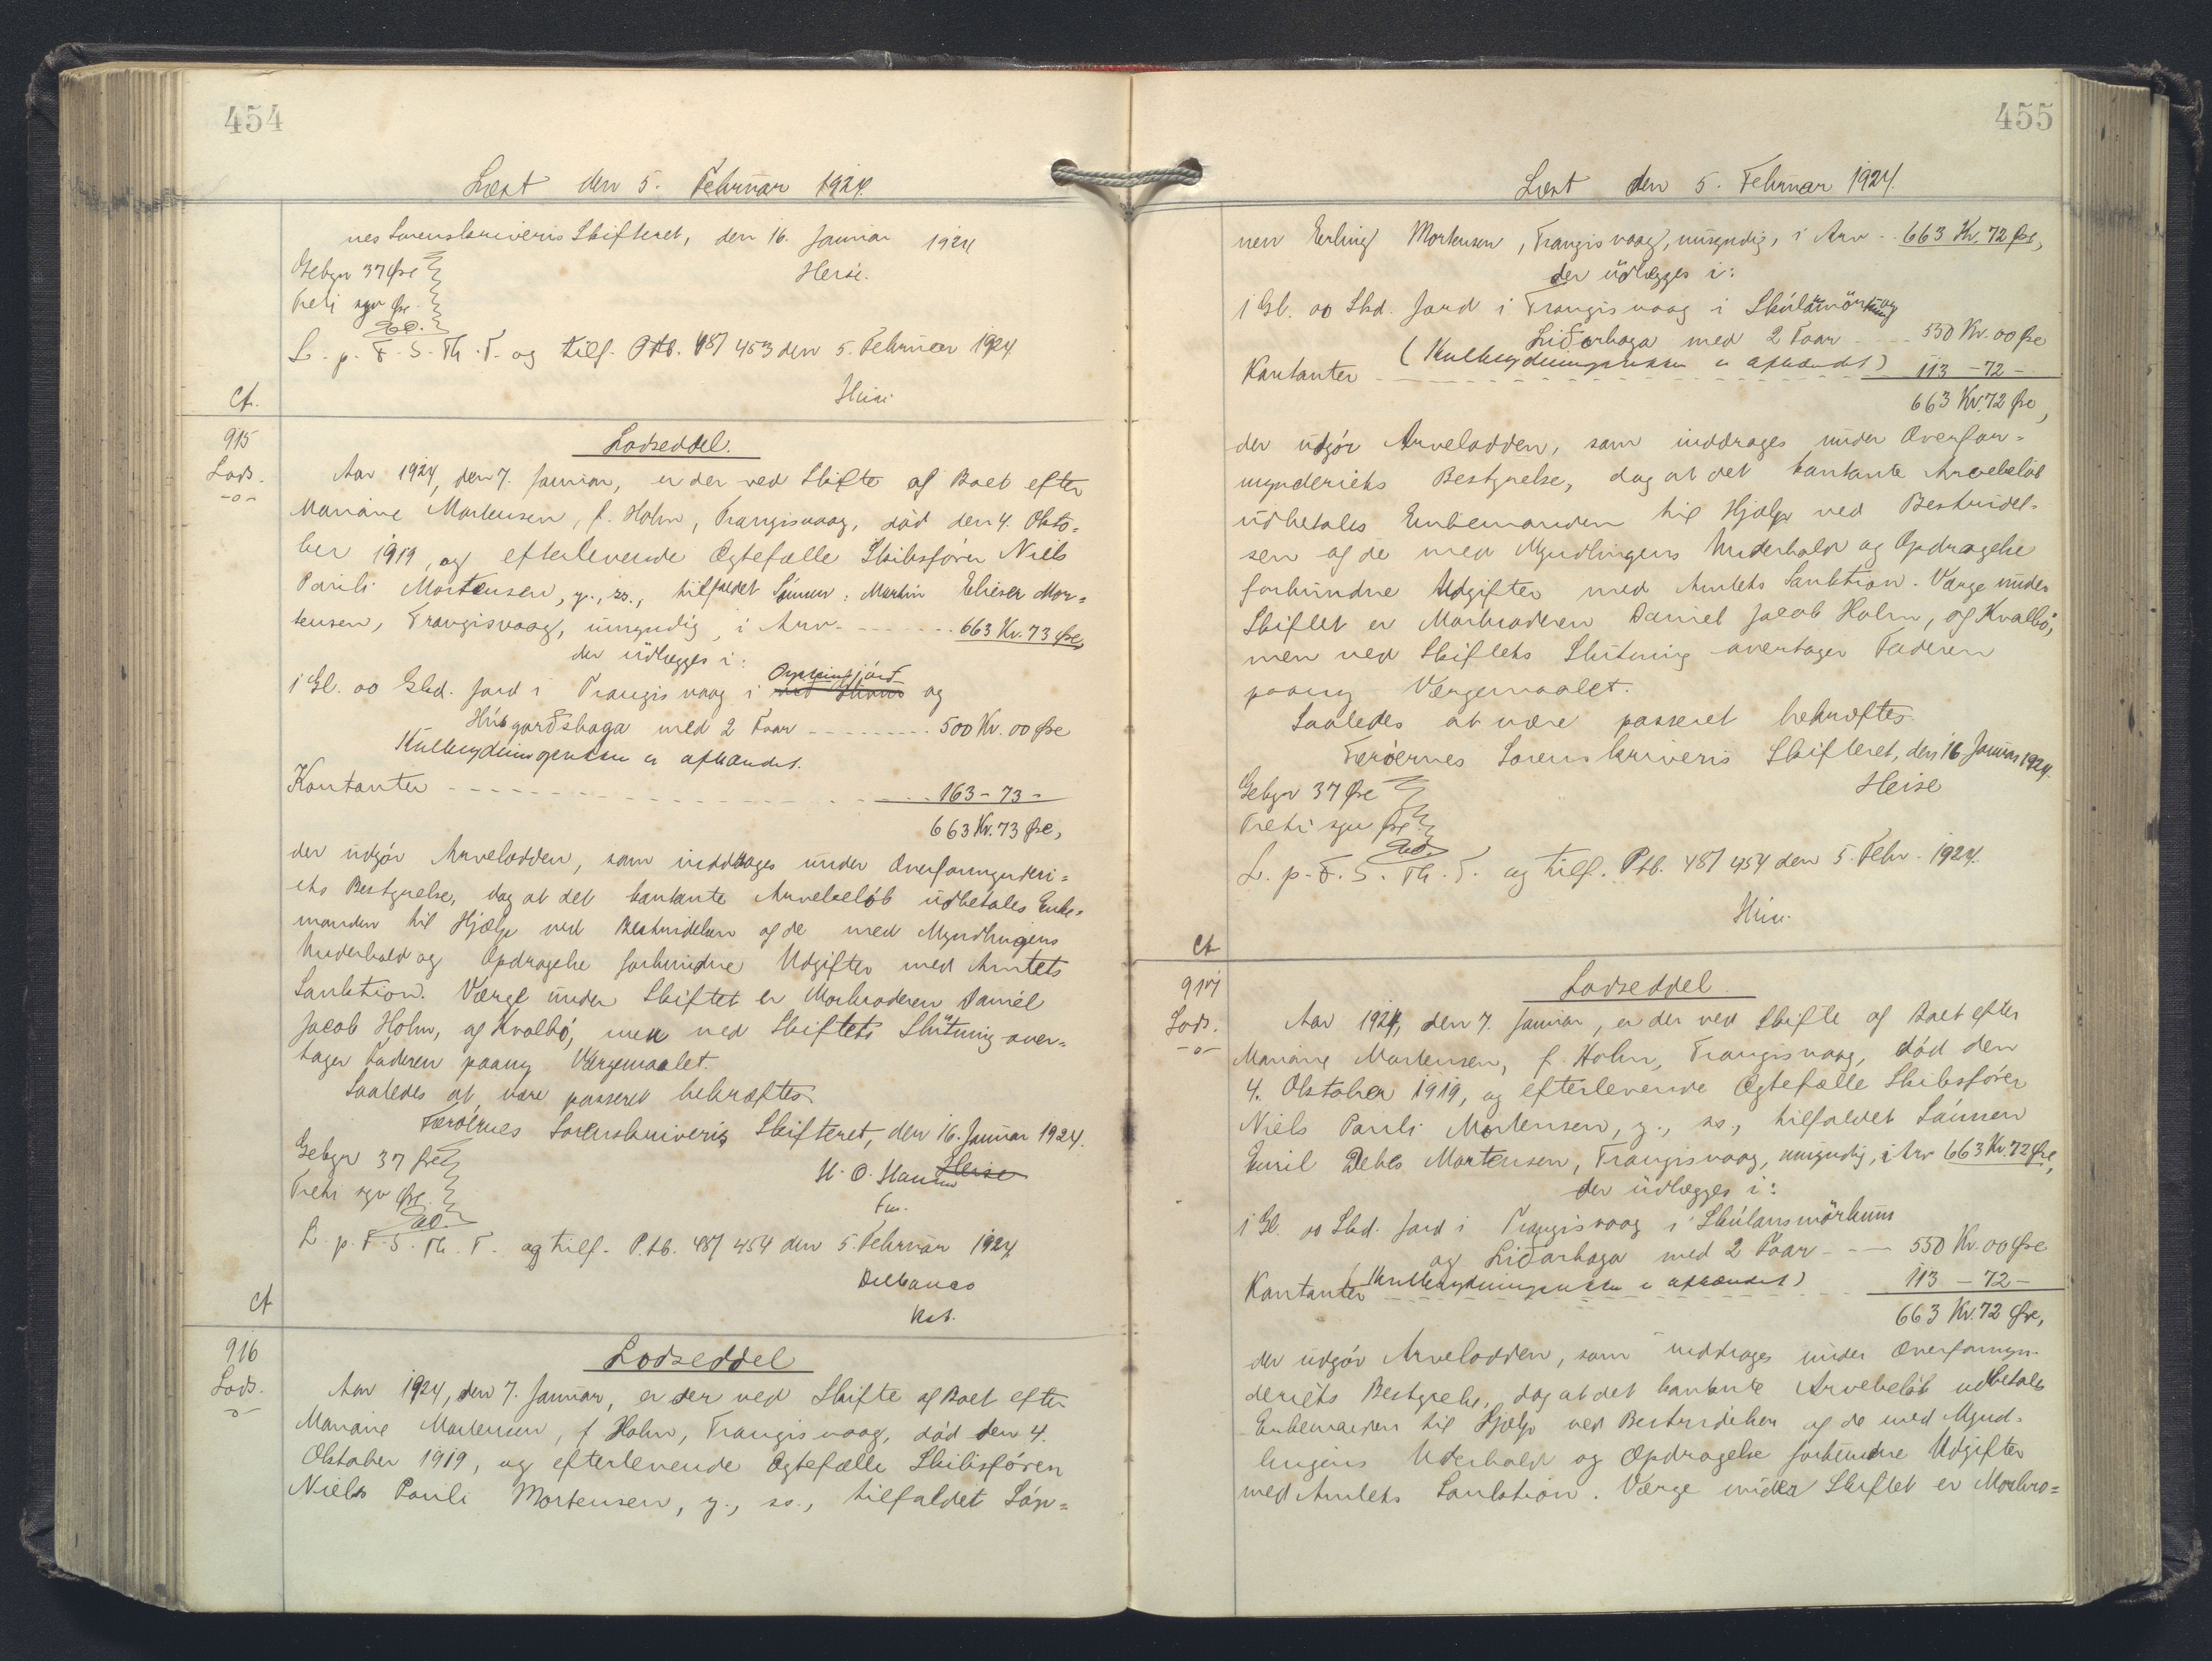 454
Læst den 5. Februar 1924.
nes Sorenskriveris Skifteret, den 16. Januar 1924
Gebyr 37 Øre
Heise.
Treti syv Øre
L. p. F. S. Th. T. og tilf. Ptb. 487 453 den 5. Februar 1924
Heise
Cf.
915
Lods.
Lodseddel.
Aar 1924, den 7. Januar, er der ved Skifte af Boet efter
Mariane Mortensen, f. Holm, Trangisvaag, død den 4. Okto=
ber 1919, og efterlevende Ægtefælle Skibsfører Niels
Pauli Mortensen, g., ss., tilfaldet Sønnen: Martin Elieser Mor=
tensen, Trangisvaag, umyndig, i Arv - - - 663 Kr. 73 Øre,
der udlægges i:
1 Gl. 00 Skd. Jord i Trangisvaag i og
Húsgarðshaga med 2 Faar - - - 500 Kr. 00 Øre
Kulbrydningsretten er afhændet.
Kontanter - - - 163 - 73 -
663 Kr. 73 Øre,
der udgør Arvelodden, som inddrages under Overformynderi=
ets Bestyrelse, dog at det kontante Arvebeløb udbetales Enke=
manden til Hjælp ved Bestridelsen af de med Myndlingens
Underhold og Opdragelse forbundne Udgifter med Amtets
Sanktion. Værge under Skiftet er Morbroderen Daniel
Jacob Holm, af Kvalbø, men ved Skiftets Slutning over=
tager Faderen paany Værgemaalet.
Saaledes at være passeret bekræftes.
Færøernes Sorenskriveris Skifteret, den 16. Januar 1924.
Gebyr 37 Øre
Heise
Treti syv Øre
Fm.
L. p. F. S. Th. T. og tilf. P.tb. 487 454 den 5. Februar 1924
Kst.
Cf
916
Lods.
Lodseddel
Aar 1924, den 7. Januar, er der ved Skifte af Boet efter
Mariane Mortensen, f. Holm, Trangisvaag, død den 4.
Oktober 1919, og efterlevende Ægtefælle Skibsføren
Niels Pauli Mortensen, g., ss., tilfaldet Søn=
455
Læst den 5. Februar 1924.
nen Erling Mortensen, Trangisvaag, umyndig, i Arv - - 663 Kr. 72 Øre,
der udlægges i:
1 Gl. 00 Skd. Jord i Trangisvaag i og
Liðarhaga med 2 Faar - - - 550 Kr. 00 Øre
(Kulbrydningsretten er afhændet)
Kontanter - - - 113 - 72 -
663 Kr. 72 Øre,
der udgør Arvelodden, som inddrages under Overfor=
mynderiets Bestyrelse, dog at det kontante Arvebeløb
udbetales Enkemanden til Hjælp ved Bestridel=
sen af de med Myndlingens Underhold og Opdragelse
forbundne Udgifter med Amtets Sanktion. Værge under
Skiftet er Morbroderen Daniel Jacob Holm, af Kvalbø,
men ved Skiftets Slutning overtager Faderen
paany Værgemaalet.
Saaledes at være passeret bekræftes.
Færøernes Sorenskriveris Skifteret, den 16 Januar 1924.
Gebyr 37 Øre
Heise
Treti syv Øre
L. p. F. S. Th. T. og tilf. Ptb. 487 454 den 5. Febr. 1924.
Heise
Cf
917
Lods.
Lodseddel
Aar 1924, den 7. Januar, er der ved Skifte af Boet efter
Mariane Mortensen, f. Holm, Trangisvaag, død den
4. Oktober 1919, og efterlevende Ægtefælle Skibsfører
Niels Pauli Mortensen, g., ss., tilfaldet Sønnen
Emil Debes Mortensen, Trangisvaag, umyndig, i Arv 663 Kr. 72 Øre,
der udlægges i:
1 Gl. 00 Skd. Jord i Trangisvaag i Skúlansmørkum
og Liðarhaga med 2 Faar - - - 550 Kr. 00 Øre
(Kulbrydningsretten er afhændet)
Kontanter - - - 113 - 72 -
663 Kr. 72 Øre,
der udgør Arvelodden, som inddrages under Overformyn=
deriets Bestyrelse, dog at det kontante Arvebeløb udbetales
Enkemanden til Hjælp ved Bestridelsen af de med Mynd=
lingens Uderhold og Opdragelse forbundne Udgifter
med Amtets Sanktion. Værge under Skiftet er Morbro=